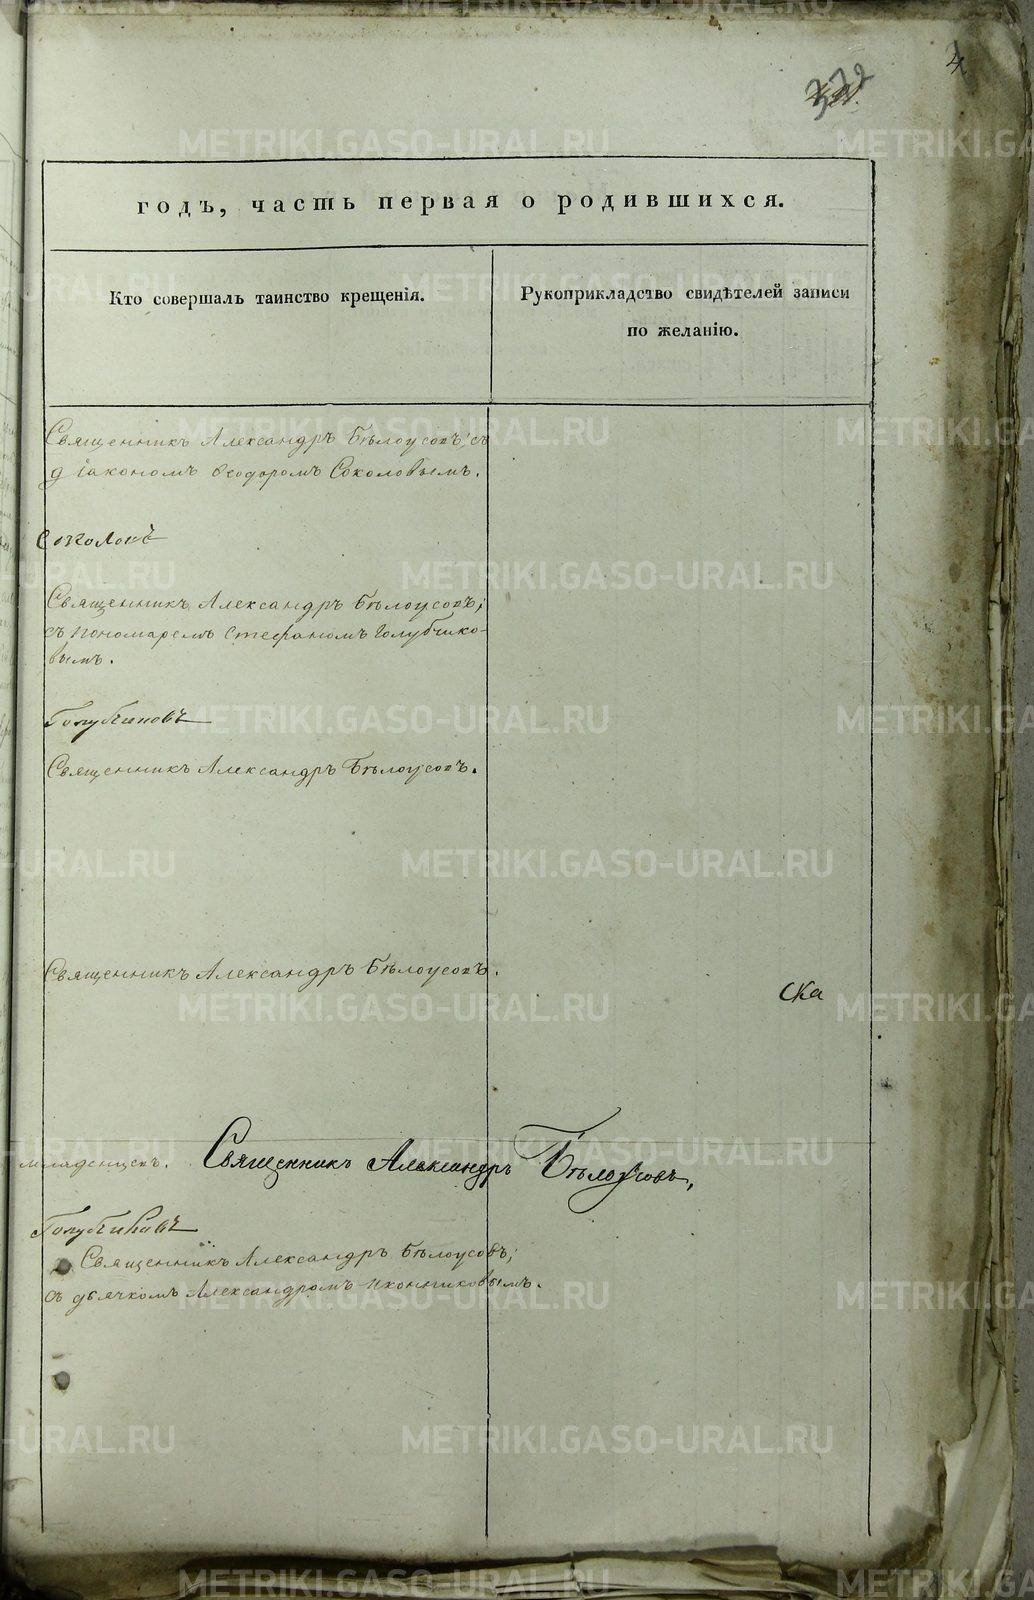 372
4
годъ, часть первая о родившихся.
Кто совершалъ таинство крещенія.
Рукоприкладство свидѣтелей записи
по желанію.
Священникъ Александръ Бѣлоусовъ; съ
діакономъ Ѳеодоромъ Соколовымъ.
Соколовъ
Священникъ Александръ Бѣлоусовъ;
съ пономаремъ Стефаномъ Голубчико-
вымъ.
Голубчиковъ
Священникъ Александръ Бѣлоусовъ.
Священникъ Александръ Бѣлоусовъ.
ска
младенцевъ. Священникъ Александръ Бѣлоусовъ,
Голубчиковъ
Священникъ Александръ Бѣлоусовъ;
съ дьячкомъ Александромъ Иконниковымъ.
METRIKI.GASO-URAL.RU